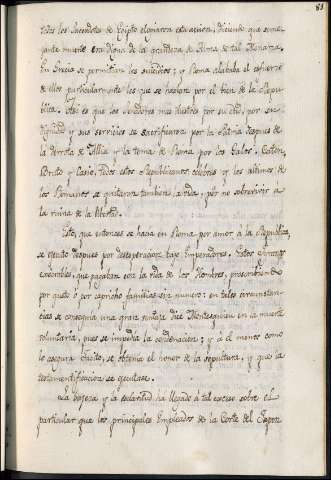 81
Todos los Sacerdotes de Egipto elogiaron esta accion, diciendo que seme-
jante muerte era digna de la grandeza de Alma de tal Monarca.
En Grecia se permitian los suicidios; y Roma alababa el esfuerzo
de ellos particularmente los que se hacian por el bien de la Repu-
blica. Asi es que los Senadores mas ilustres por su edad, por su
dignidad y sus servicios se sacrificaron por la Patria despues de
la derrota de Allia y la toma de Roma por los Galos. Caton,
Bruto y Casio, todos estos Republicanos celebres y los ultimos de
los Romanos se quitaron tambien la vida, por no sobrevivir a
la ruina de la libertad.
Esto, que entonces se hacia en Roma por amor a la Republica,
se egecutó despues por desesperacion bajo Emperadores. Estos
execrables, que jugaban con la vida de los Hombres, proscribiendo
por gusto o por capricho familias sin numero: en tales circunstan-
cias se conseguia una gran ventaja dice Montesquieu en la muerte
voluntaria, pues se impedia la condenacion; y a el menos como
lo asegura Tacito, se obtenia el honor de la sepultura, y que la
testamentificacion se egecutase.
La bageza y la esclavitud ha llegado a tal exceso sobre el
particular que los principales Empleados de la Corte del Japon